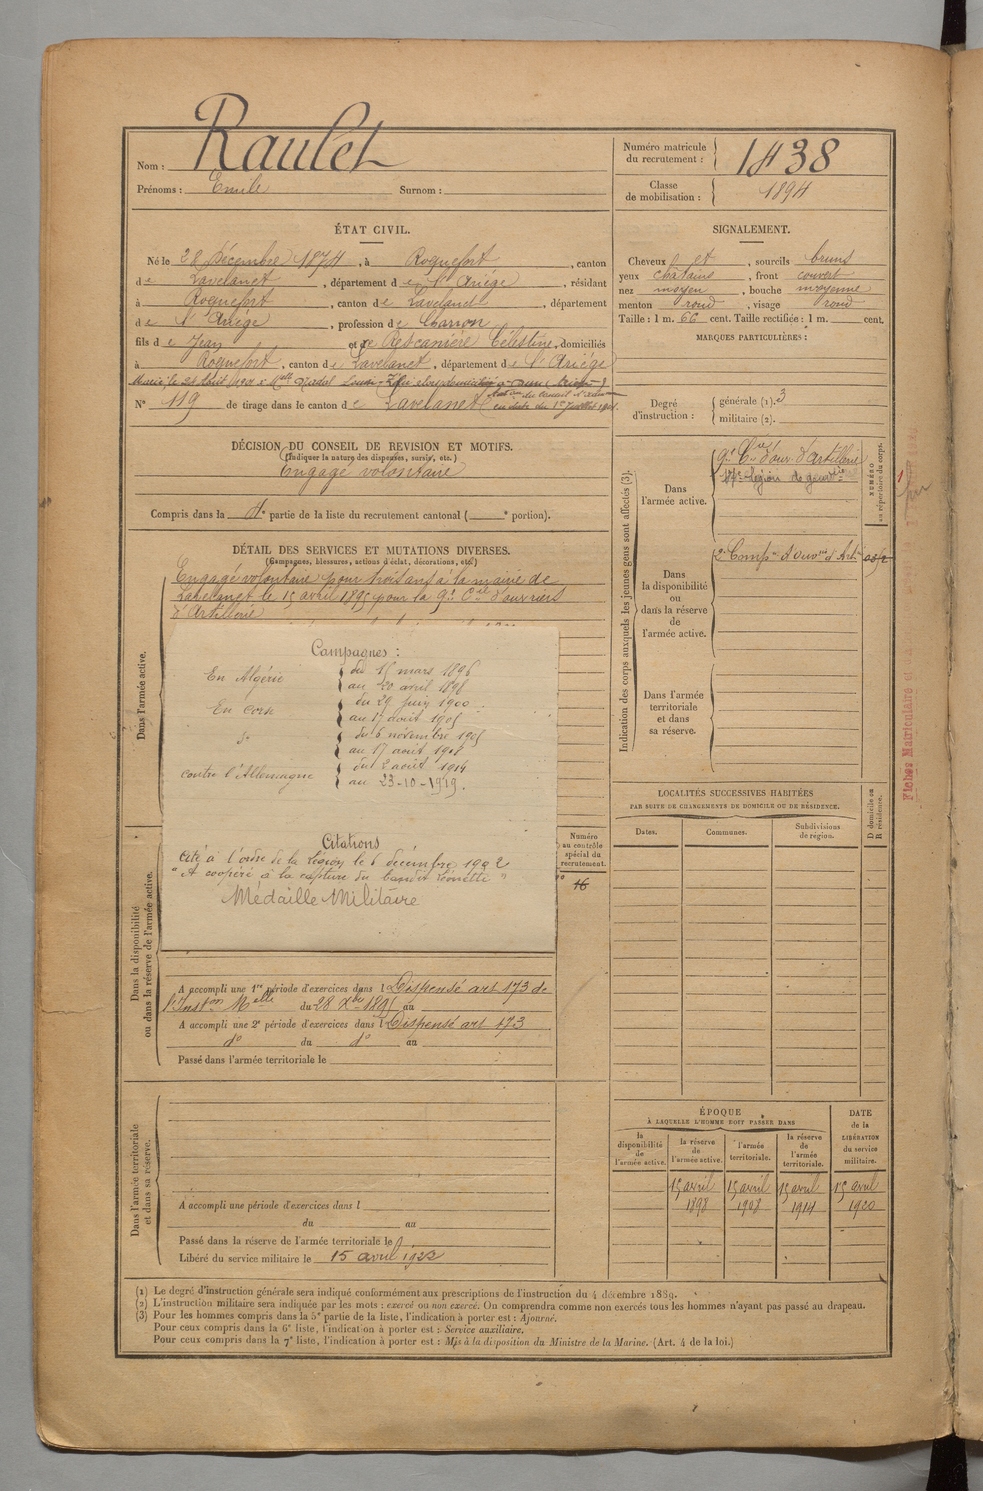 Nom : Raulet
Prénoms : Emile Surnom :
Numéro matricule du recrutement : 1438
Classe de mobilisation : 1894
ÉTAT CIVIL.
Né le 28 Décembre 1874, à Roquefort, canton
de Lavelanet, département de l'Ariége, résidant
à Roquefort, canton de Lavelanet, département
de l'Ariége, profession de Charron
fils de Jean et de Rescanière Célestine, domiciliés
à Roquefort, canton de Lavelanet, département de l'Ariége
Marié le 28 Août 1901 à Melle Nadal
en date du 1er Juillet 1901.
N° 119 de tirage dans le canton de Lavelanet
SIGNALEMENT.
Cheveux et, sourcils bruns
yeux chatains, front couvert
nez moyen, bouche moyenne
menton rond, visage rond
Taille : 1 m. 66 cent. Taille rectifiée : 1 m. cent.
MARQUES PARTICULIÈRES :
Degré d'instruction : générale (1). 3
militaire (2).
DÉCISION DU CONSEIL DE REVISION ET MOTIFS.
(Indiquer la nature des dispenses, sursis, etc.)
Engagé volontaire
Compris dans la de partie de la liste du recrutement cantonal ( e portion).
DÉTAIL DES SERVICES ET MUTATIONS DIVERSES.
(Campagnes, blessures, actions d'éclat, décorations, etc.)
Dans l'armée active.
Engagé volontaire pour trois ans à la mairie de
Lavelanet le 15 avril 1895 pour la 9e Cie d'ouvriers
d'Artillerie
Campagnes :
En Algérie du 15 mars 1896
au 20 avril 1898
En Corse du 29 juin 1900
au 17 août 1905
d° du 6 novembre 1905
au 17 août 1908
contre l'Allemagne du 2 août 1914
au 23-10-1919.
Citations
Cité à l'ordre de la Légion le 6 décembre 1902
"A coopéré à la capture du bandit Léonetti"
Médaille Militaire
Dans la disponibilité ou dans la réserve de l'armée active.
Numéro au contrôle spécial du recrutement.
16
A accompli une 1re période d'exercices dans l Dispensé art 173 de
l'Inston Melle du 28 Xbre 1895 au
A accompli une 2e période d'exercices dans l Dispensé art 173
d° du d° au
Passé dans l'armée territoriale le
Dans l'armée territoriale et dans sa réserve.
A accompli une période d'exercices dans l
du au
Passé dans la réserve de l'armée territoriale le
Libéré du service militaire le 15 avril 1922
Indication des corps auxquels les jeunes gens sont affectés (3).
NUMÉRO au répertoire du corps.
Dans l'armée active.
9e Cie d'ouv. d'artillerie
17e légion de gendrie
Dans la disponibilité ou dans la réserve de l'armée active.
2e Compie d'ouvers d'Artie
Dans l'armée territoriale et dans sa réserve.
LOCALITÉS SUCCESSIVES HABITÉES
PAR SUITE DE CHANGEMENTS DE DOMICILE OU DE RÉSIDENCE.
Dates. Communes. Subdivisions de région. D domicile ou R résidence.
ÉPOQUE
À LAQUELLE L'HOMME DOIT PASSER DANS
la disponibilité de l'armée active.
la réserve de l'armée active.
l'armée territoriale.
la réserve de l'armée territoriale.
DATE de la LIBÉRATION du service militaire.
15 avril 15 avril 15 avril 15 avril
1898 1908 1914 1920
(1) Le degré d'instruction générale sera indiqué conformément aux prescriptions de l'instruction du 4 décembre 1889.
(2) L'instruction militaire sera indiquée par les mots : exercé ou non exercé. On comprendra comme non exercés tous les hommes n'ayant pas passé au drapeau.
(3) Pour les hommes compris dans la 5e partie de la liste, l'indication à porter est : Ajourné.
Pour ceux compris dans la 6e liste, l'indication à porter est : Service auxiliaire.
Pour ceux compris dans la 7e liste, l'indication à porter est : Mis à la disposition du Ministre de la Marine. (Art. 4 de la loi.)
Fiches Matriculaire et